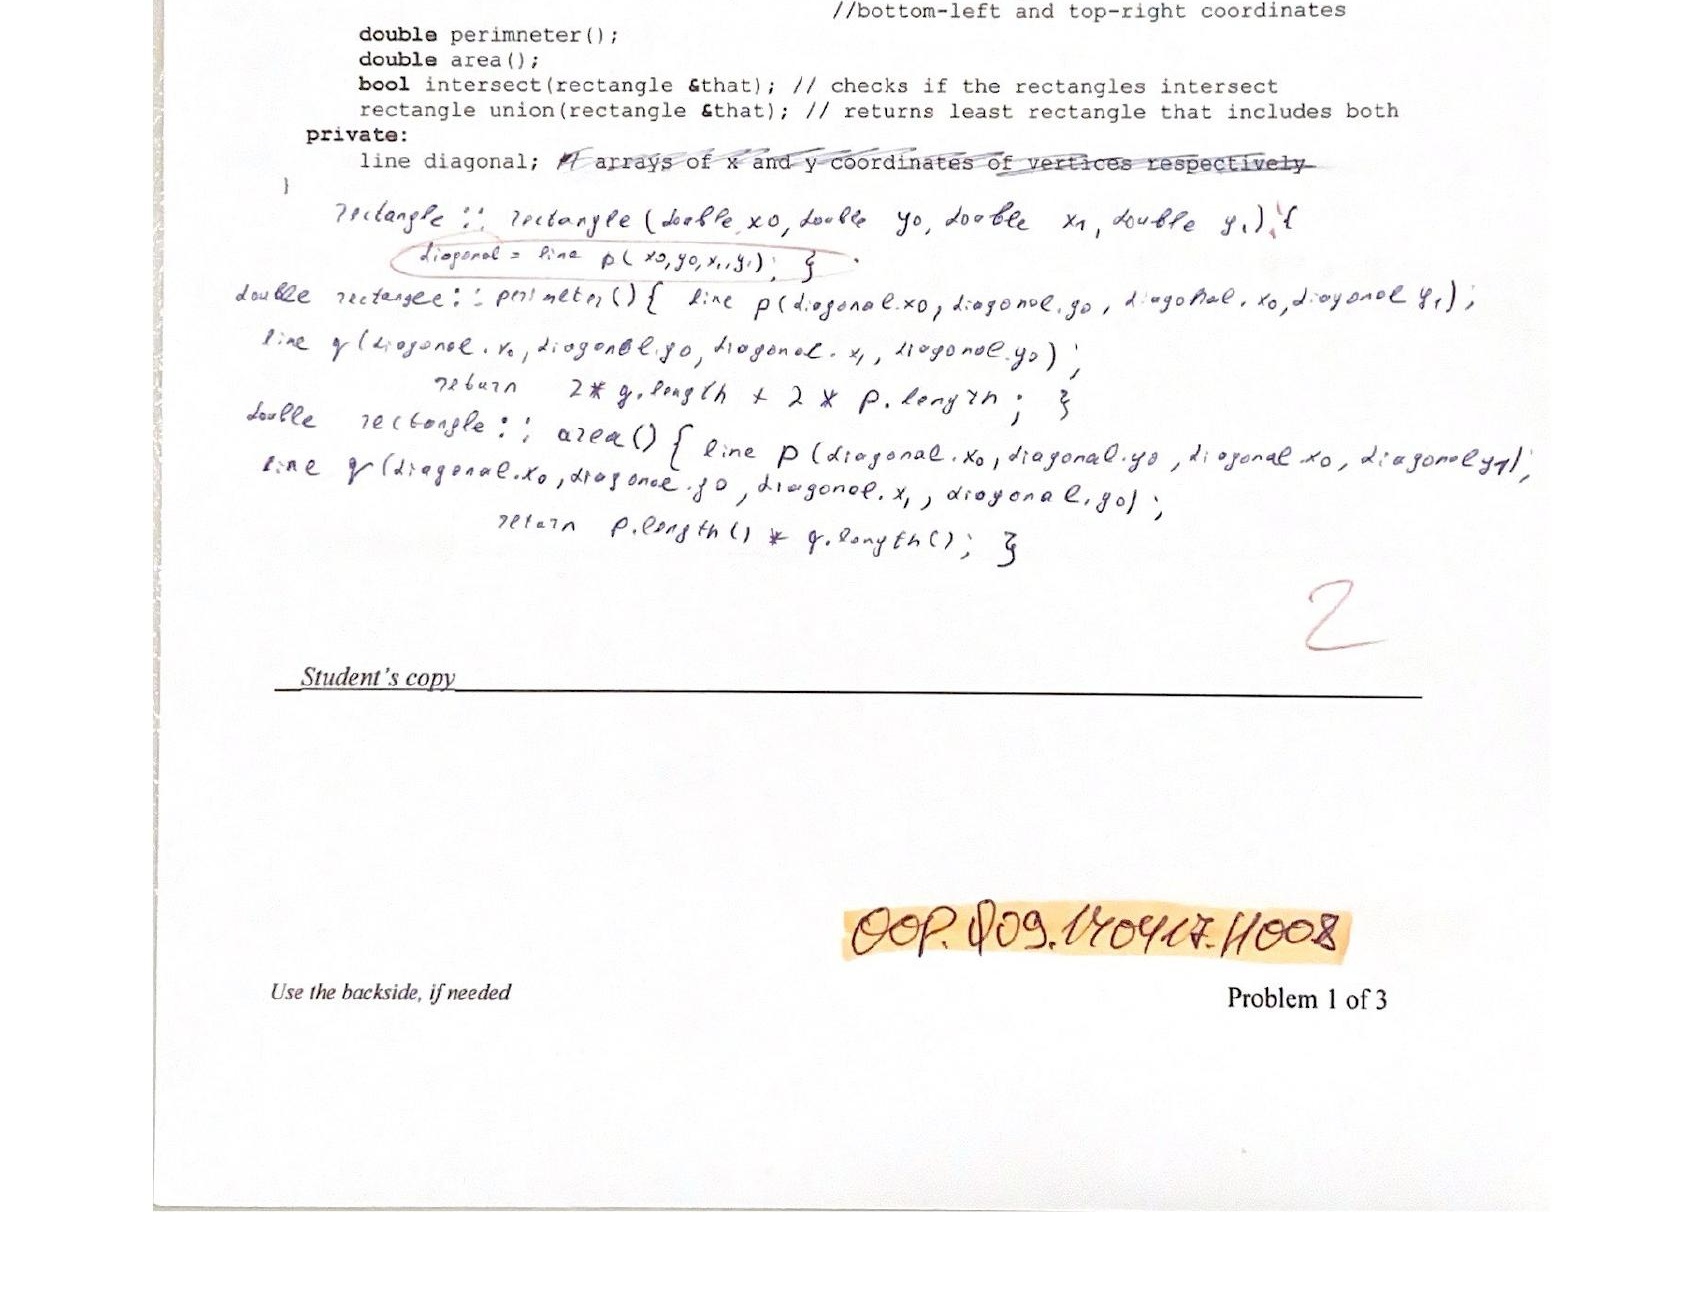 //bottom-left and top-right coordinates
double perimneter();
double area();
bool intersect(rectangle &that); // checks if the rectangles intersect
rectangle union(rectangle &that); // returns least rectangle that includes both
private:
line diagonal; // arrays of x and y coordinates of vertices respectively
}
rectangle :: rectangle (double x0, double y0, double x1, double y1) {
diagonal = line p( x0, y0, x1, y1); }
double rectangle :: perimeter() { line p(diagonal.x0, diagonal.y0, diagonal.x0, diagonal y1);
line q(diagonal.x0, diagonal.y0, diagonal.x1, diagonal.y0);
return 2* q.length + 2 * p.length; }
double rectangle :: area() { line p (diagonal.x0, diagonal.y0, diagonal x0, diagonal y1);
line q(diagonal.x0, diagonal.y0, diagonal.x1, diagonal.y0);
return p.length() * q.length(); }
2
Student's copy
OOP. Q09.140417.H008
Use the backside, if needed
Problem 1 of 3